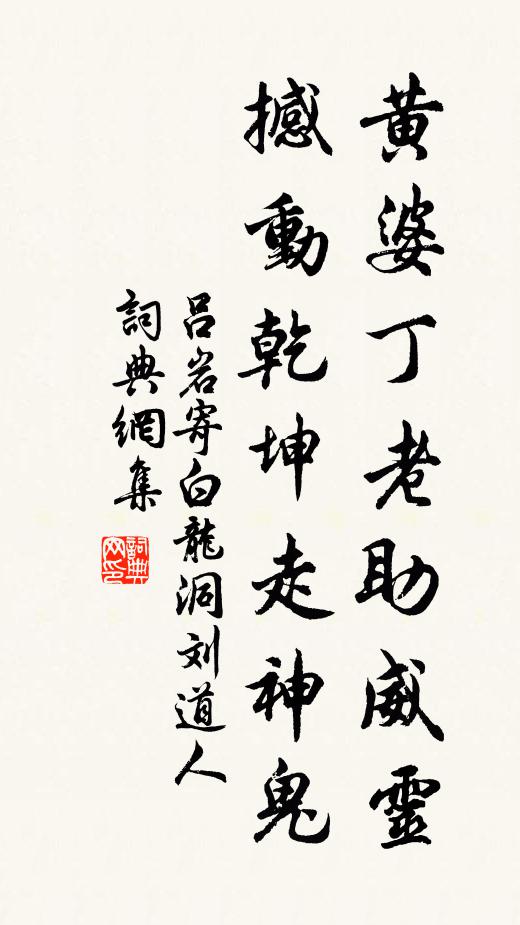 黃婆丁老助威靈
撼動乾坤走神鬼
呂岩寄白龍洞刘道人
詞典網集
詞典网印